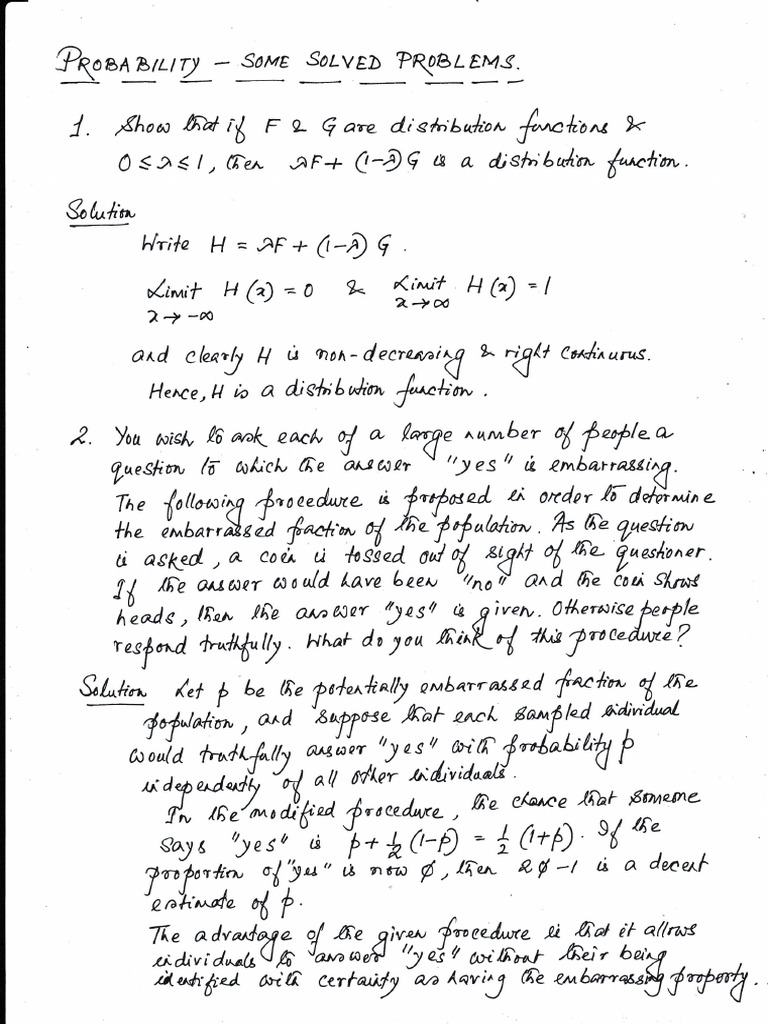 PROBABILITY – SOME SOLVED PROBLEMS.
1. Show that if F & G are distribution functions &
0 ≤ λ ≤ 1, then λF + (1-λ) G is a distribution function.
Solution
Write H = λF + (1-λ) G.
Limit H(x) = 0 & Limit H(x) = 1
x → -∞ x → ∞
and clearly H is non-decreasing & right continuous.
Hence, H is a distribution function.
2. You wish to ask each of a large number of people a
question to which the answer "yes" is embarrassing.
The following procedure is proposed in order to determine
the embarrassed fraction of the population. As the question
is asked, a coin is tossed out of sight of the questioner.
If the answer would have been "no" and the coin shows
heads, then the answer "yes" is given. Otherwise people
respond truthfully. What do you think of this procedure?
Solution Let p be the potentially embarrassed fraction of the
population, and suppose that each sampled individual
would truthfully answer "yes" with probability p
independently of all other individuals.
In the modified procedure, the chance that someone
says "yes" is p + 1/2 (1-p) = 1/2 (1+p). If the
proportion of "yes" is now ϕ, then 2ϕ-1 is a decent
estimate of p.
The advantage of the given procedure is that it allows
individuals to answer "yes" without their being
identified with certainty as having the embarrassing property.